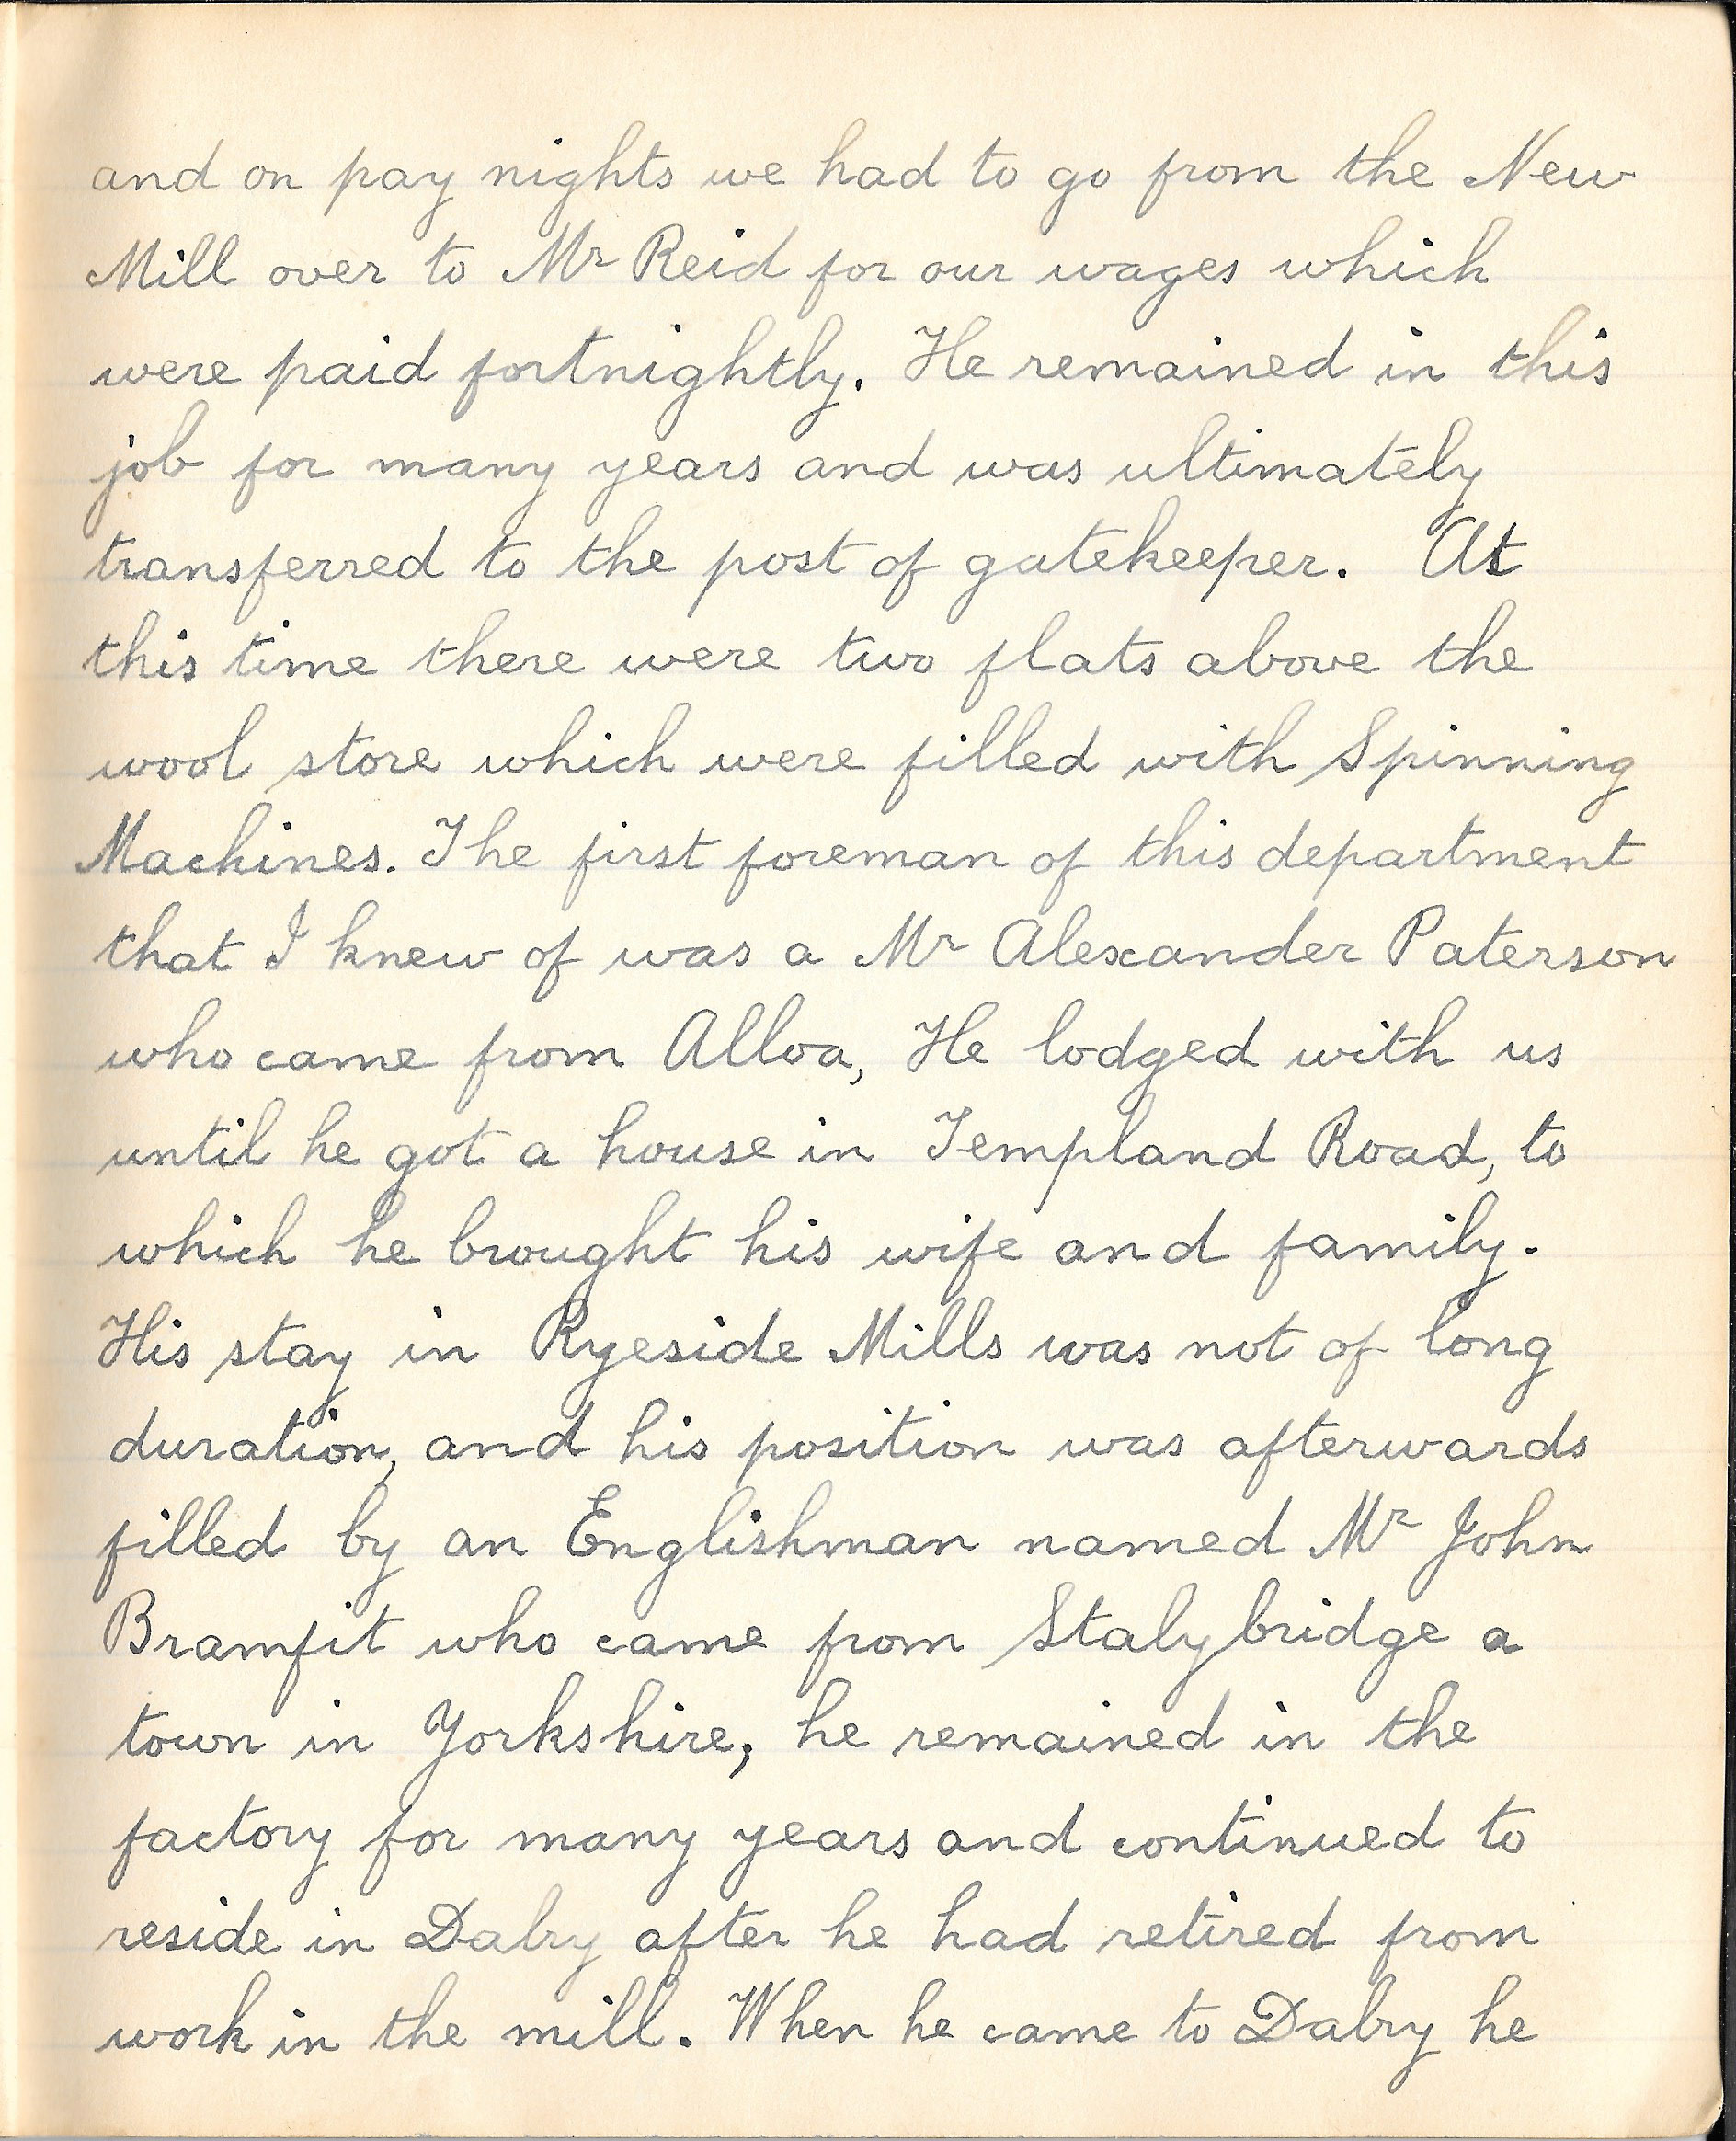 and on pay nights we had to go from the New
Mill over to Mr Reid for our wages which
were paid fortnightly. He remained in this
job for many years and was ultimately
transferred to the post of gatekeeper. At
this time there were two flats above the
wool store which were filled with Spinning
Machines. The first foreman of this department
that I knew of was a Mr Alexander Paterson
who came from Alloa, He lodged with us
until he got a house in Templand Road, to
which he brought his wife and family.
His stay in Ryeside Mills was not of long
duration, and his position was afterwards
filled by an Englishman named Mr John
Bramfit who came from Stalybridge a
town in Yorkshire, he remained in the
factory for many years and continued to
reside in Dalry after he had retired from
work in the mill. When he came to Dalry he